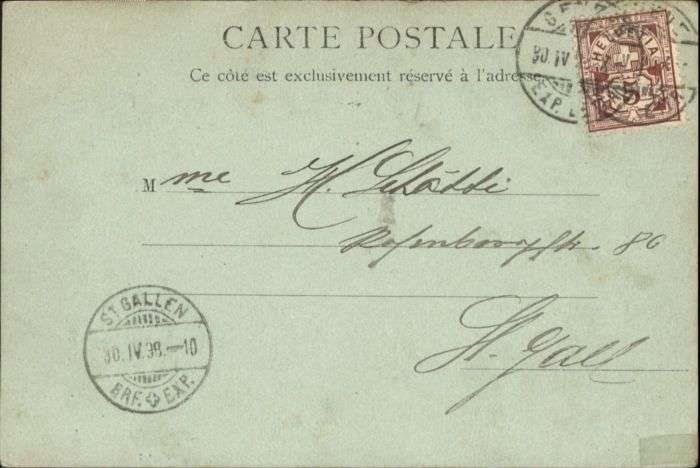 CARTE POSTALE
Ce côté est exclusivement réservé à l'adresse
HELVETIA
5
30. IV
EXP.
Mme H. Schätti
Rosenbergstr. 86
St. Gall
ST. GALLEN
30. IV. 98. — 10
BRF. EXP.